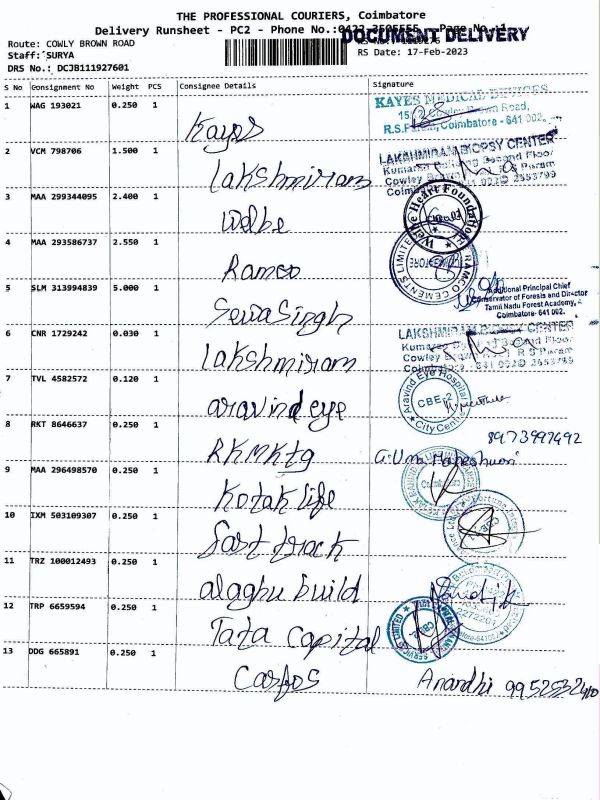 THE PROFESSIONAL COURIERS, Coimbatore
Delivery Runsheet - PC2 - Phone No.:0422 3505555 Page No.:1
DOCUMENT DELIVERY
Route: COWLY BROWN ROAD
Staff: SURYA
RS Date: 17-Feb-2023
DRS No.: DCJB111927601
S No Consignment No Weight PCS Consignee Details Signature
1 WAG 193021 0.250 1 Kayes
KAYES MEDICAL DEVICES
R.S.Puram, Coimbatore - 641 002.
2 VCM 798706 1.500 1 Lakshmiram
LAKSHMIRAM BIOPSY CENTER
Kumaran Building Second Floor
Cowley Brown R S Puram
3 MAA 299344095 2.400 1 Welbe
Welbe Heart Foundation
4 MAA 293586737 2.550 1 Ramco
RAMCO CEMENTS LIMITED
5 SLM 313994839 5.000 1 SewaSingh
Additional Principal Chief
Conservator of Forests and Director
Tamil Nadu Forest Academy,
Coimbatore- 641 002.
6 CNR 1729242 0.030 1 Lakshmiram
LAKSHMIRAM BIOPSY CENTER
Kumaran Second Floor
Cowley Brown R S Puram
7 TVL 4582572 0.120 1 aravind eye
Aravind Eye Hospital
CBE-2
City Centre
8 RKT 8646637 0.250 1 RKMKtg
8973997492
G. Uma Maheshwari
9 MAA 296498570 0.250 1 Kotak life
10 IXM 503109307 0.250 1 fast track
11 TRZ 100012493 0.250 1 alaghu build
12 TRP 6659594 0.250 1 Tata Capital
13 DDG 665891 0.250 1 Carfos
Anandhi